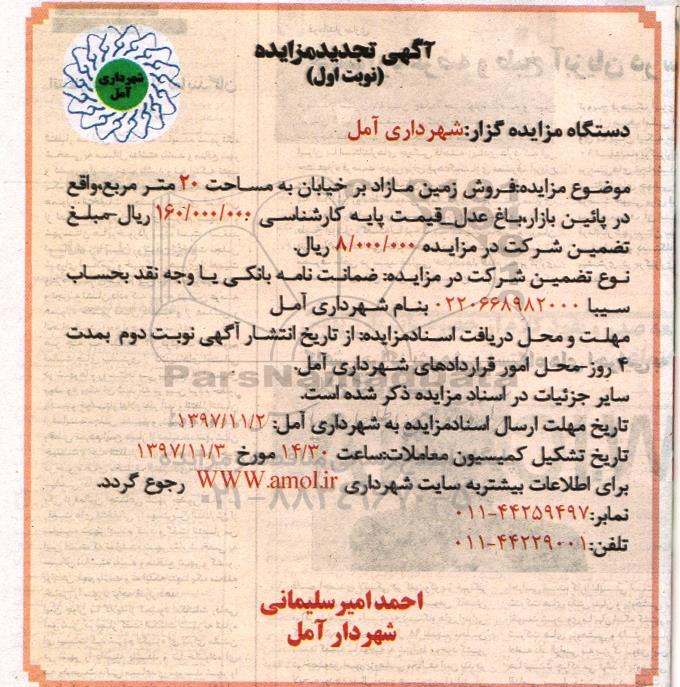 آگهی تجدیدمزایده
(نوبت اول)
شهرداری
آمل
دستگاه مزایده گزار:شهرداری آمل
موضوع مزایده:فروش زمین مازاد بر خیابان به مساحت ۲۰ متر مربع،واقع
در پائین بازار،باغ عدل_قیمت پایه کارشناسی ۱۶۰/۰۰۰/۰۰۰ ریال-مبلغ
تضمین شرکت در مزایده ۸/۰۰۰/۰۰۰ ریال.
نوع تضمین شرکت در مزایده: ضمانت نامه بانکی یا وجه نقد بحساب
سیبا ۰۲۲۰۶۶۸۹۸۲۰۰۰ بنام شهرداری آمل
مهلت و محل دریافت اسنادمزایده: از تاریخ انتشار آگهی نوبت دوم بمدت
۴ روز-محل امور قراردادهای شهرداری آمل.
ParsNamadData
سایر جزئیات در اسناد مزایده ذکر شده است.
تاریخ مهلت ارسال اسنادمزایده به شهرداری آمل: ۱۳۹۷/۱۱/۲
تاریخ تشکیل کمیسیون معاملات:ساعت ۱۴/۳۰ مورخ ۱۳۹۷/۱۱/۳
برای اطلاعات بیشتربه سایت شهرداری WWW.amol.ir رجوع گردد.
نمابر:۰۱۱-۴۴۲۵۹۴۹۷
تلفن:۰۱۱-۴۴۲۲۹۰۰۱
احمدامیرسلیمانی
شهردار آمل